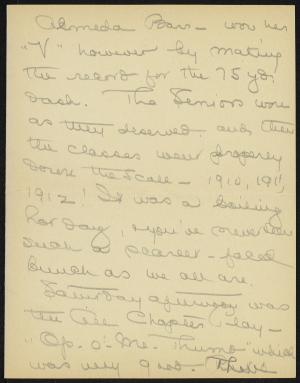 Almeda Barr — won her
"V" however by making
the record for the 75 yd.
dash. The Seniors won
as they deserved and then
the classes went properly
down the scale — 1910, 1911,
1912! It was a boiling
hot day, & you've never seen
such a scarlet-faced
bunch as we all are.
Saturday afternoon was
the Chapter Play —
"Op-o'-Me-Thumb" which
was very good.